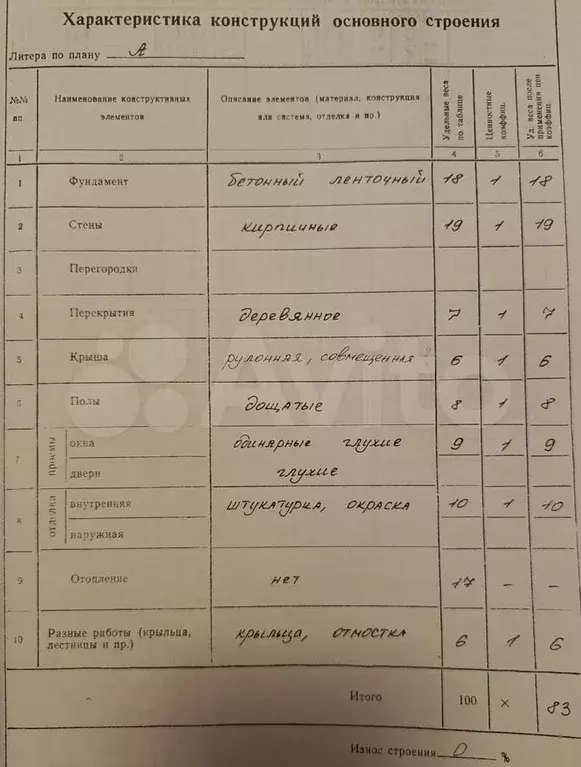 Характеристика конструкций основного строения
Литера по плану А
№№ пп. Наименование конструктивных элементов Описание элементов (материал, конструкция или система, отделка и пр.) Удельные веса по таблице Ценностные коэффиц. Уд. веса после применения цен. коэффиц.
1 2 3 4 5 6
1 Фундамент бетонный ленточный 18 1 18
2 Стены кирпичные 19 1 19
3 Перегородки
4 Перекрытия деревянное 7 1 7
5 Крыша рулонная, совмещенная 6 1 6
Полы дощатые 8 1 8
7 проемы окна одинарные глухие 9 1 9
двери глухие
8 отделка внутренняя штукатурка, окраска 10 1 10
наружная
9 Отопление нет 17 – –
10 Разные работы (крыльца, крыльца, отмостка 6 1 6
лестницы и пр.)
Итого 100 × 83
Износ строения 0 %
Avito